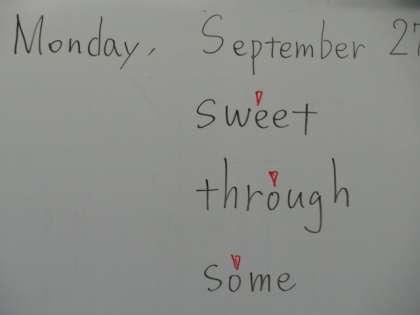 Monday, September 27
sweet
through
some